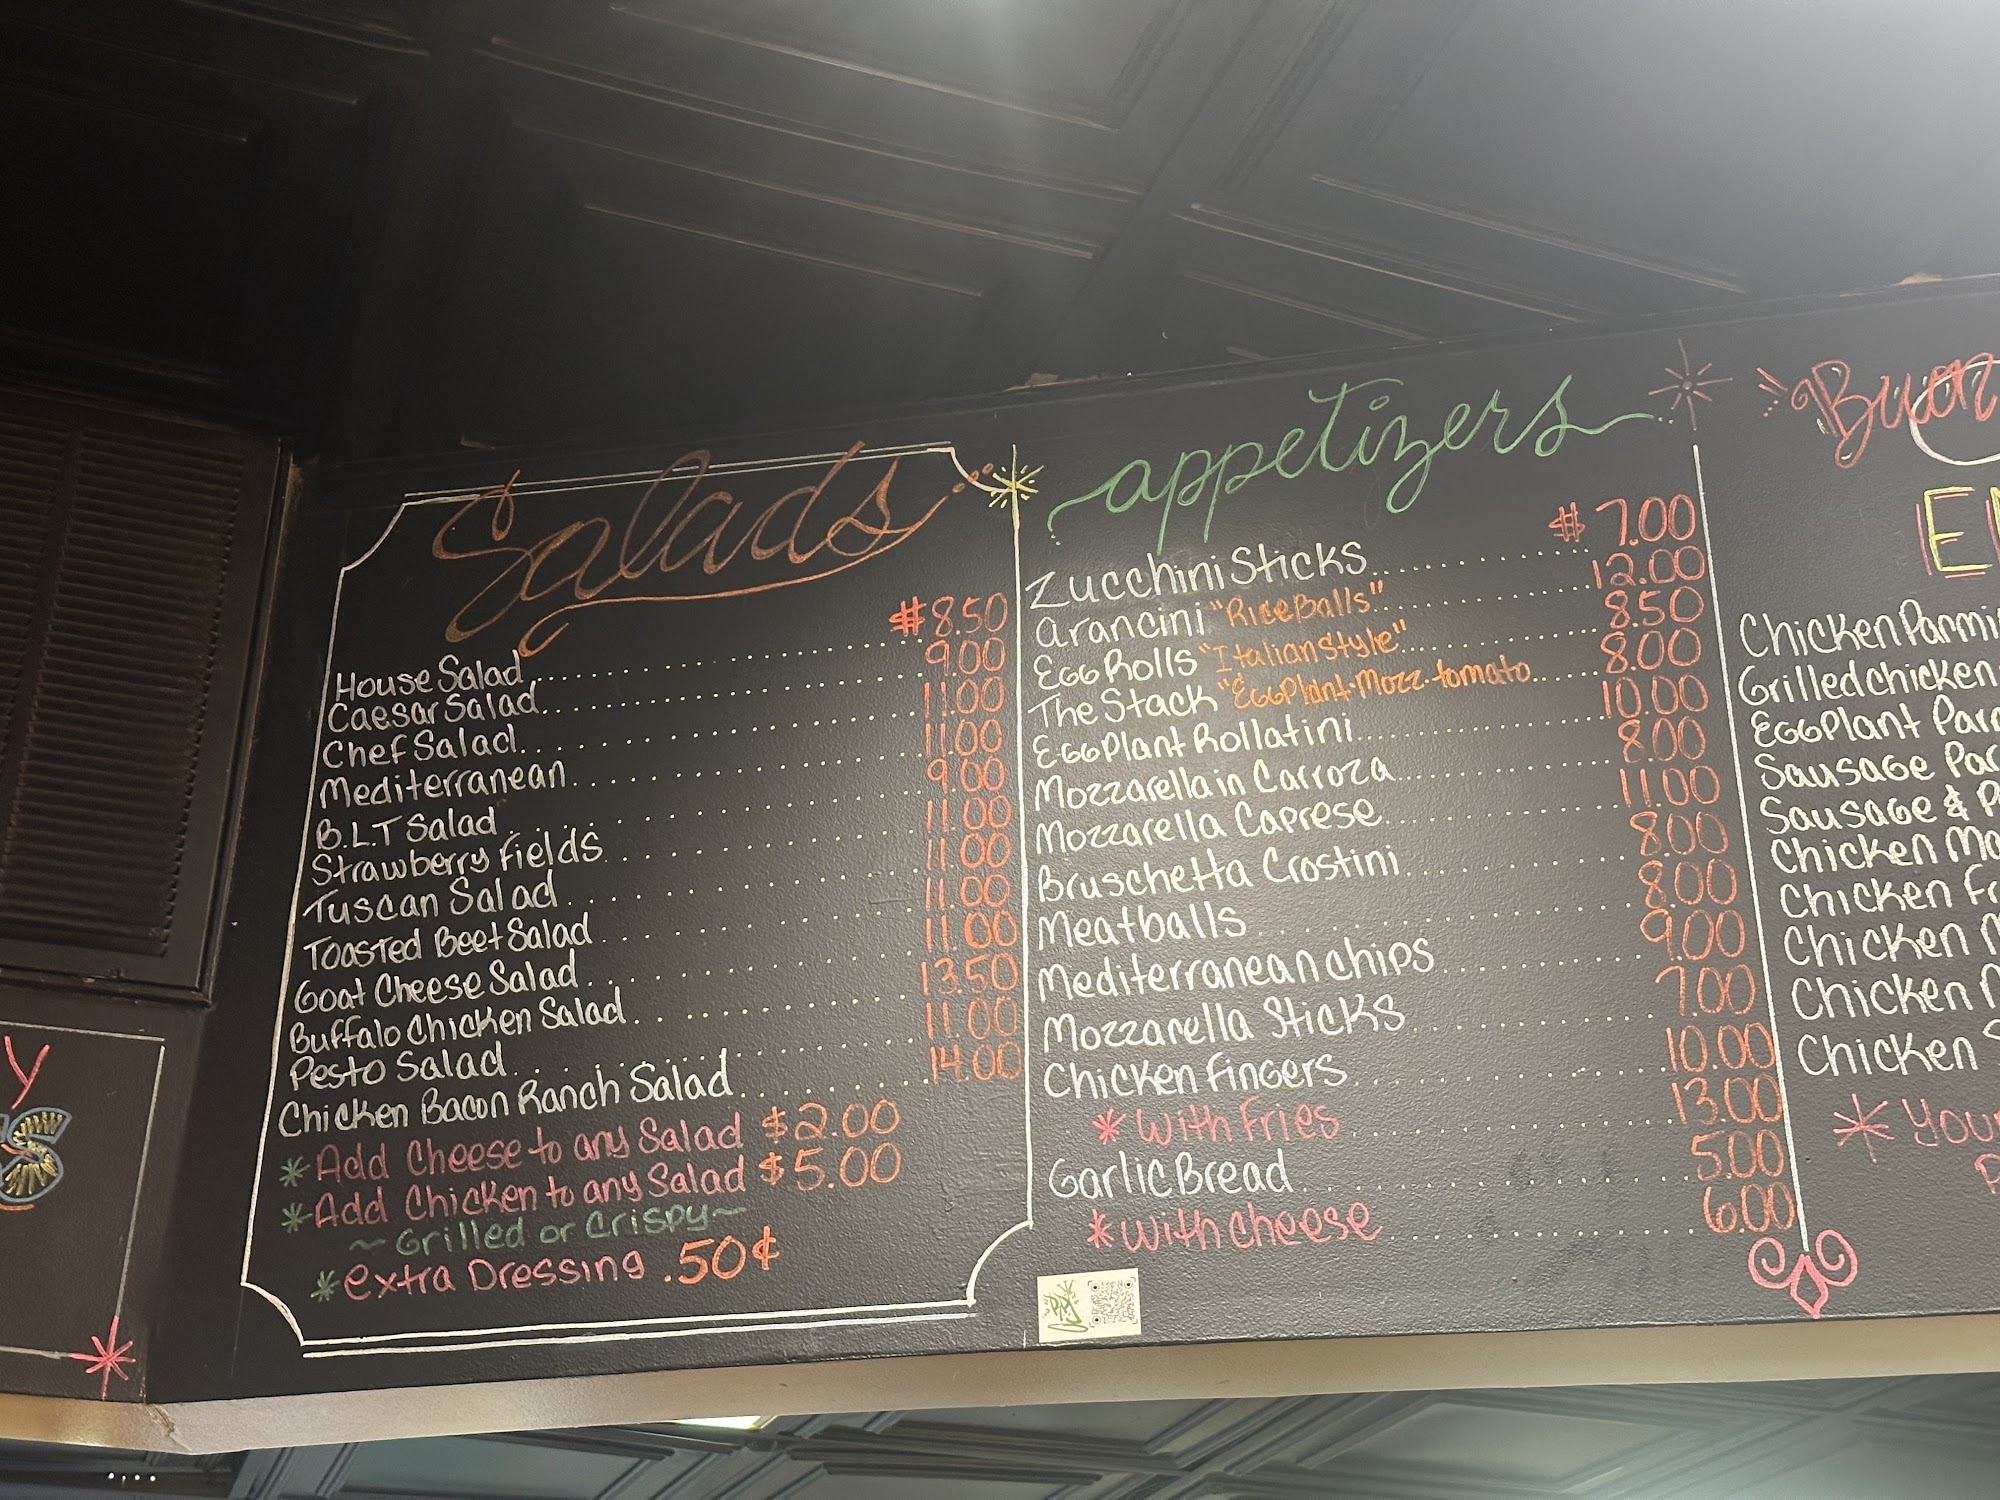 Salads
House Salad $8.50
Caesar Salad 9.00
Chef Salad 11.00
Mediterranean 11.00
B.L.T Salad 9.00
Strawberry Fields 11.00
Tuscan Salad 11.00
Toasted Beet Salad 11.00
Goat Cheese Salad 11.00
Buffalo Chicken Salad 13.50
Pesto Salad 11.00
Chicken Bacon Ranch Salad 14.00
*Add Cheese to any Salad $2.00
*Add Chicken to any Salad $5.00
~Grilled or Crispy~
*extra Dressing .50¢
appetizers
Zucchini Sticks $7.00
arancini "Rice Balls" 12.00
Egg Rolls "Italian Style" 8.50
The Stack "EggPlant·Mozz·tomato 8.00
EggPlant Rollatini 10.00
Mozzarella in Carroza 8.00
Mozzarella Caprese 11.00
Bruschetta Crostini 8.00
Meatballs 8.00
Mediterranean chips 9.00
Mozzarella Sticks 7.00
Chicken Fingers 10.00
*With Fries 13.00
Garlic Bread 5.00
*With cheese 6.00
Buon
Chicken Parmi
Grilled chicken
EggPlant Par
Sausage Par
Sausage & P
Chicken Ma
Chicken Fr
Chicken M
Chicken
Chicken S
*You
Y
S